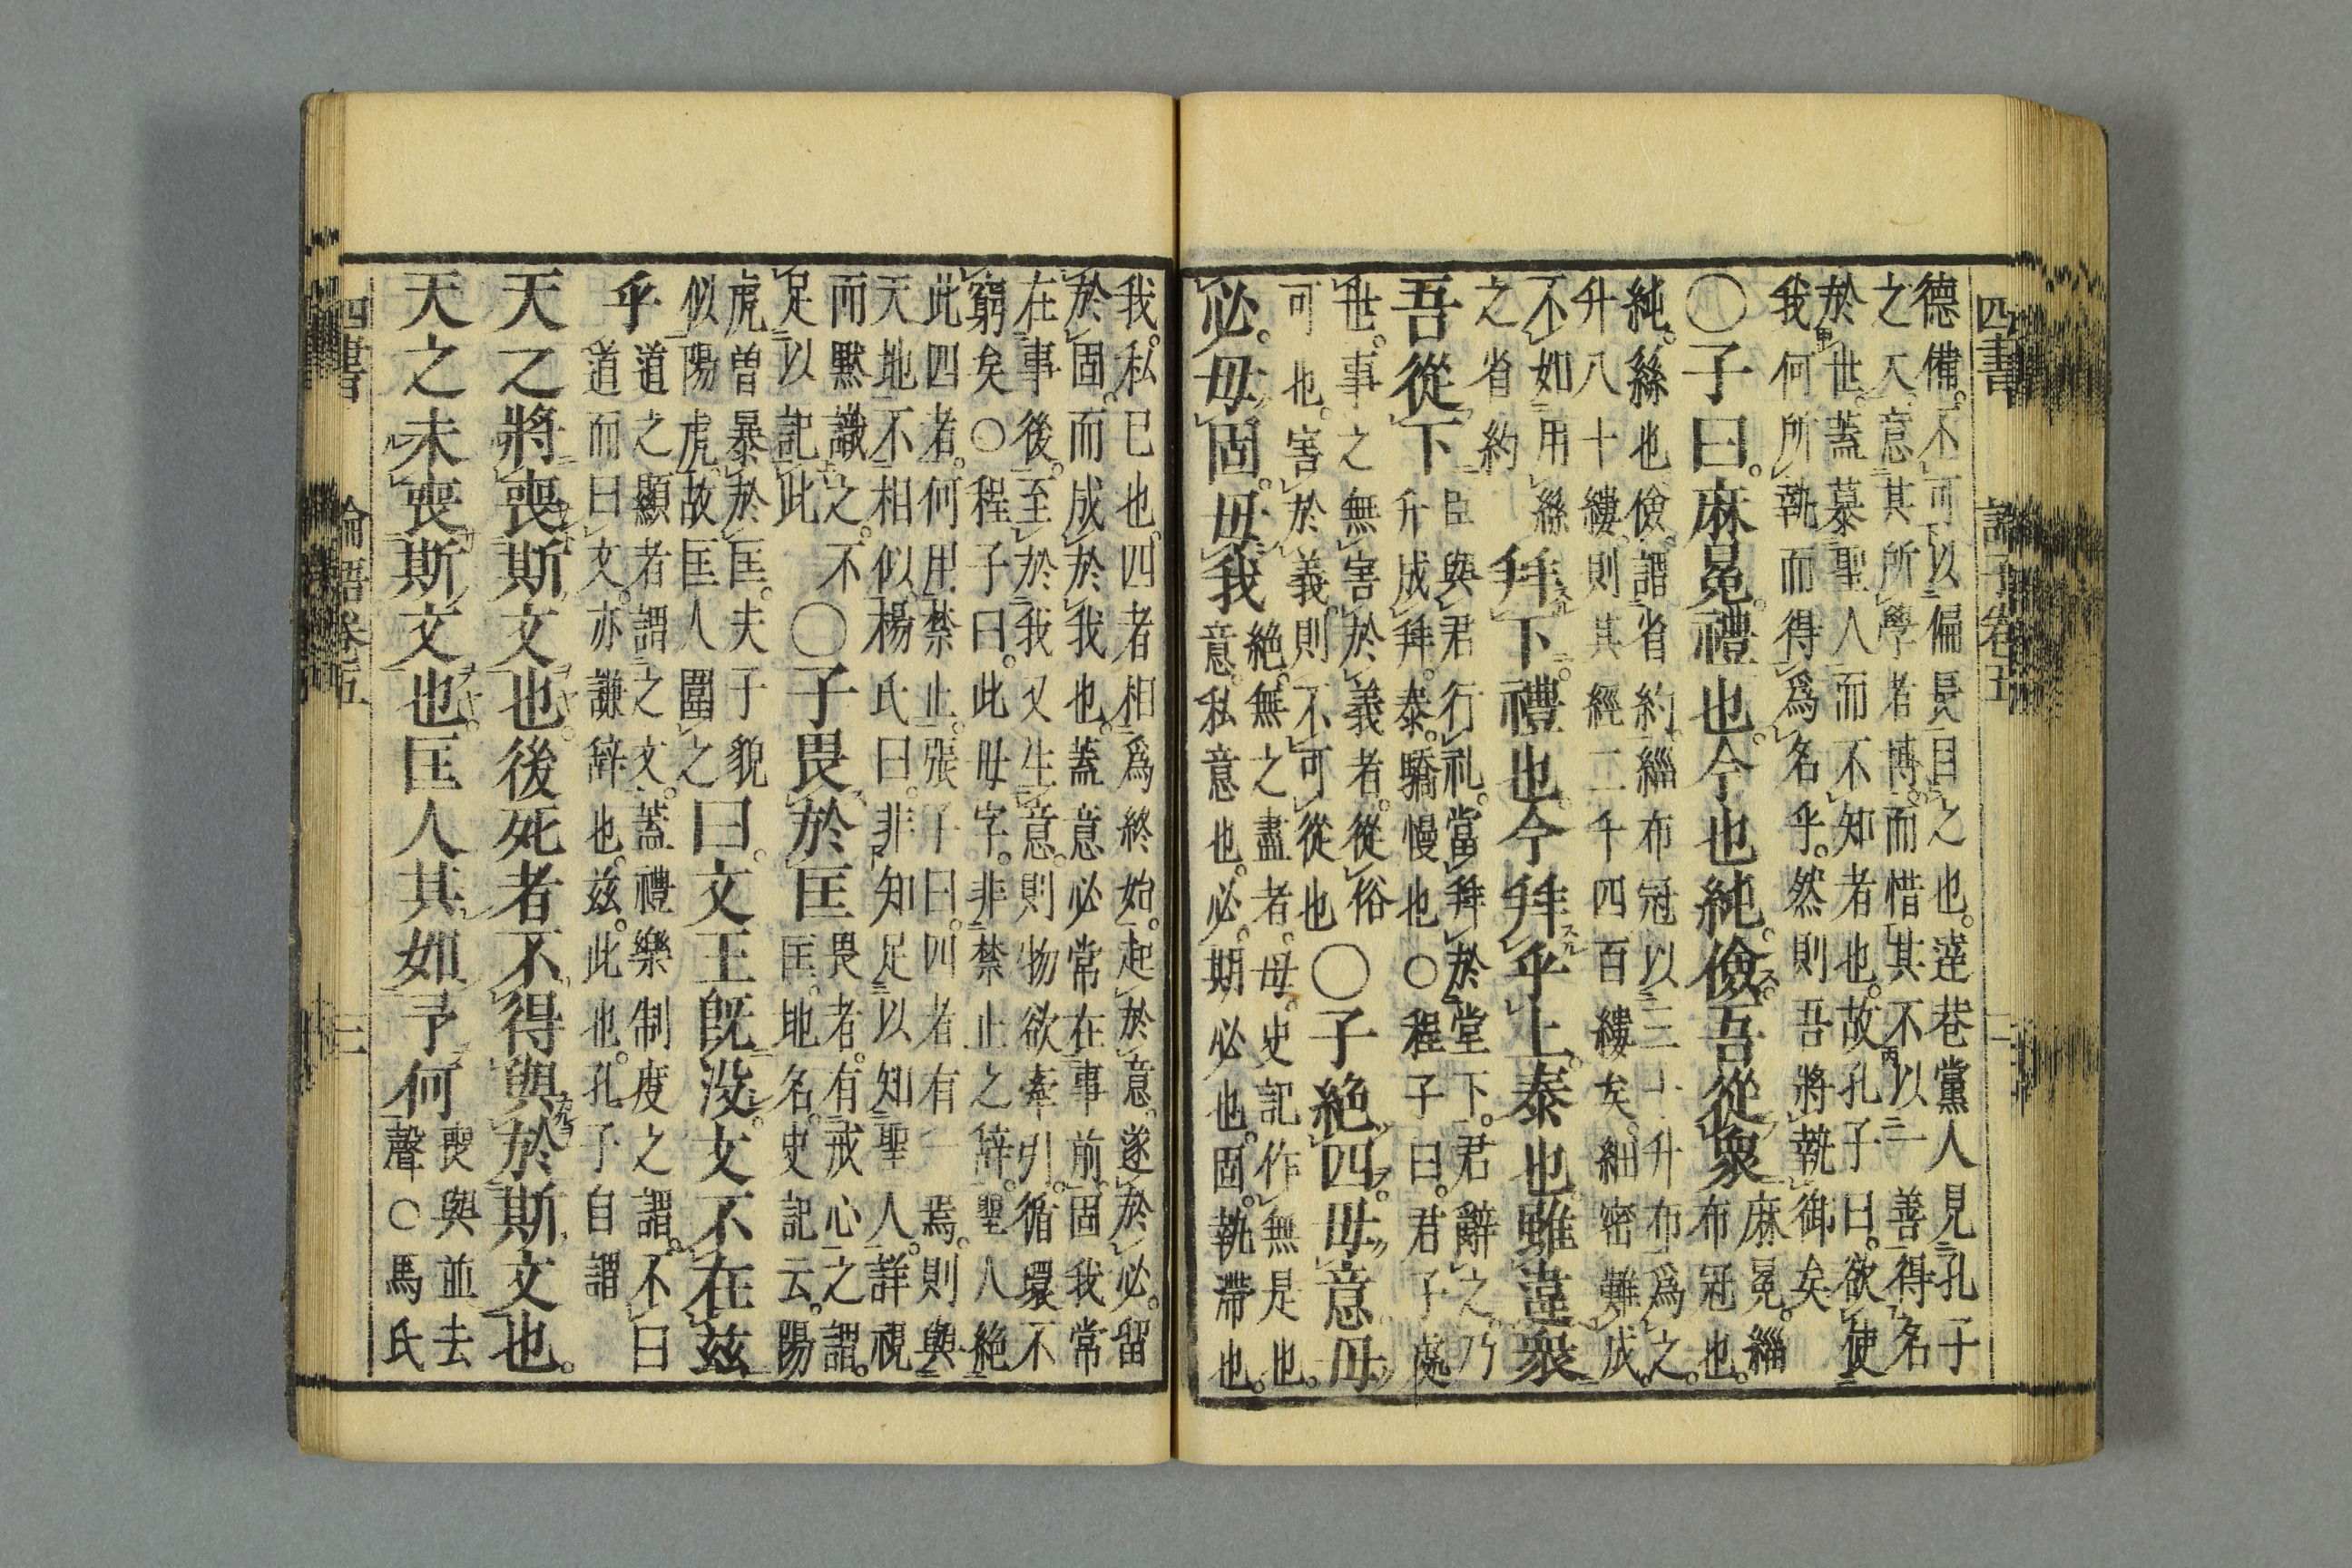 四書　論語卷五　二
德備。不可以偏長目之也。達巷黨人見孔子
之大。意其所學者博。而惜其不以一善得名
於世。蓋慕聖人而不知者也。故孔子曰。欲使
我何所執而得爲名乎。然則吾將執御矣
○子曰。麻冕。禮也。今也純。儉。吾從衆
麻冕。緇
布冠也。
純。絲也。儉。謂省約。緇布冠以三十升布爲之。
升八十縷。則其經二千四百縷矣。細密難成。
不如用絲
之省約
拜下。禮也。今拜乎上。泰也。雖違衆
吾從下
臣與君行礼。當拜於堂下。君辭之。乃
升成拜。泰。驕慢也。○程子曰。君子處
世。事之無害於義者。從俗
可也。害於義。則不可從也
○子絶四。毋意。毋
必。毋固。毋我
絶。無之盡者。毋。史記作無是也。
意。私意也。必。期必也。固。執滯也。
我。私己也。四者相爲終始。起於意。遂於必。留
於固。而成於我也。蓋意必常在事前。固我常
在事後。至於我又生意。則物欲牽引。循環不
窮矣。○程子曰。此毋字。非禁止之辭。聖人絶
此四者。何用禁止。張子曰。四者有一焉。則與
天地不相似。楊氏曰。非知足以知聖人。詳視
而默識之。不
足以記此
○子畏於匡
畏者。有戒心之謂。
匡。地名。史記云。陽
虎曽暴於匡。夫子貌
似陽虎。故匡人圍之
曰。文王既没。文不在茲
乎
道之顯者謂之文。蓋禮樂制度之謂。不曰
道而曰文。亦謙辭也。茲。此也。孔子自謂
天之將喪斯文也。後死者不得與於斯文也。
天之未喪斯文也。匡人其如予何
喪與並去
聲○馬氏
四書　論語卷五　三